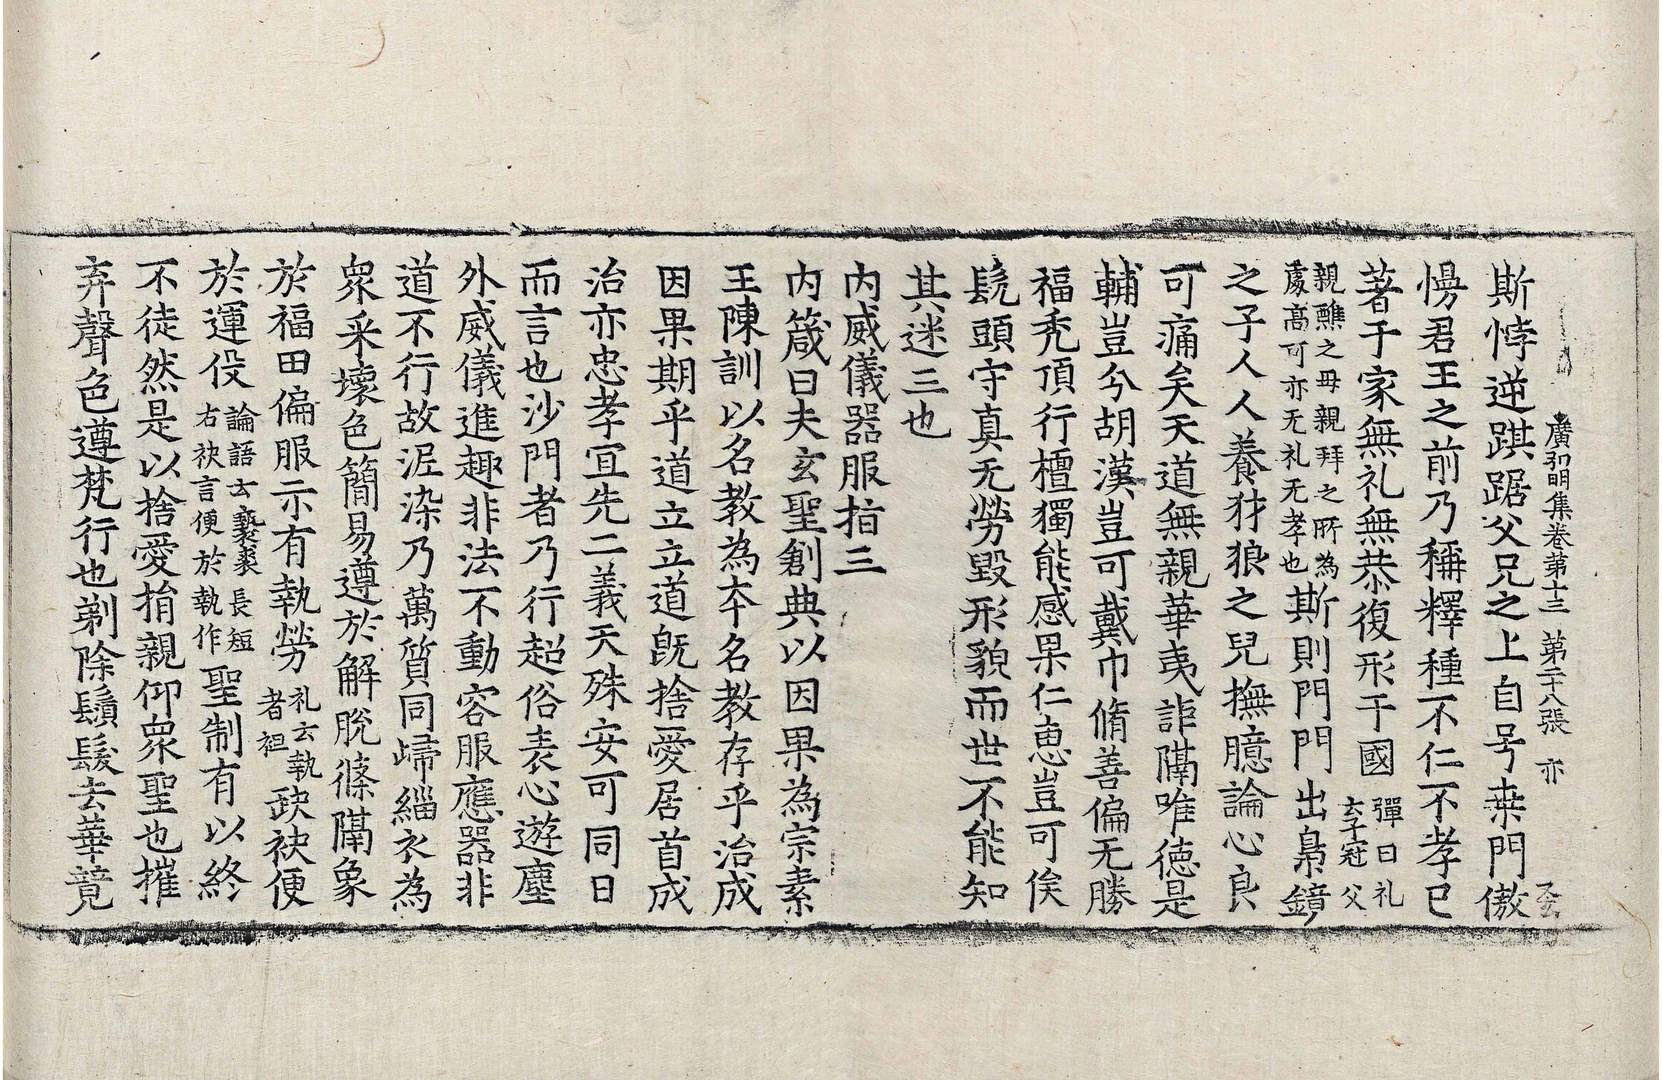 廣弘明集卷第十三 第二十八張 亦
斯悖逆踑踞父兄之上自号桒門傲
慢君王之前乃稱釋種不仁不孝已
著于家無礼無恭復形于國 彈曰礼玄子冠父
親醮之母親拜之所為處高可亦无礼无孝也 斯則門門出梟鏡
之子人人養犲狼之兒撫臆論心良
可痛矣天道無親華夷詎隔唯德是
輔豈兮胡漢豈可戴巾脩善偏无勝
福禿頂行檀獨能感果仁恵豈可俟
髠頭守真无勞毀形貌而世不能知
其迷三也
内威儀器服指三
内箴曰夫玄聖創典以因果為宗素
王陳訓以名教為夲名教存乎治成
因果期乎道立立道旣捨愛居首成
治亦忠孝宜先二義天殊安可同日
而言也沙門者乃行超俗表心遊塵
外威儀進趣非法不動容服應器非
道不行故泥染乃萬質同歸緇衣為
衆采壞色簡易遵於解脫絛隔象
於福田偏服示有執勞 礼云執者袒 缺袂便
於運役 論語云褻裘長短右袂言便於執作 聖制有以終
不徒然是以捨愛捐親仰衆聖也摧
弃聲色遵梵行也剃除鬚髮去華竟